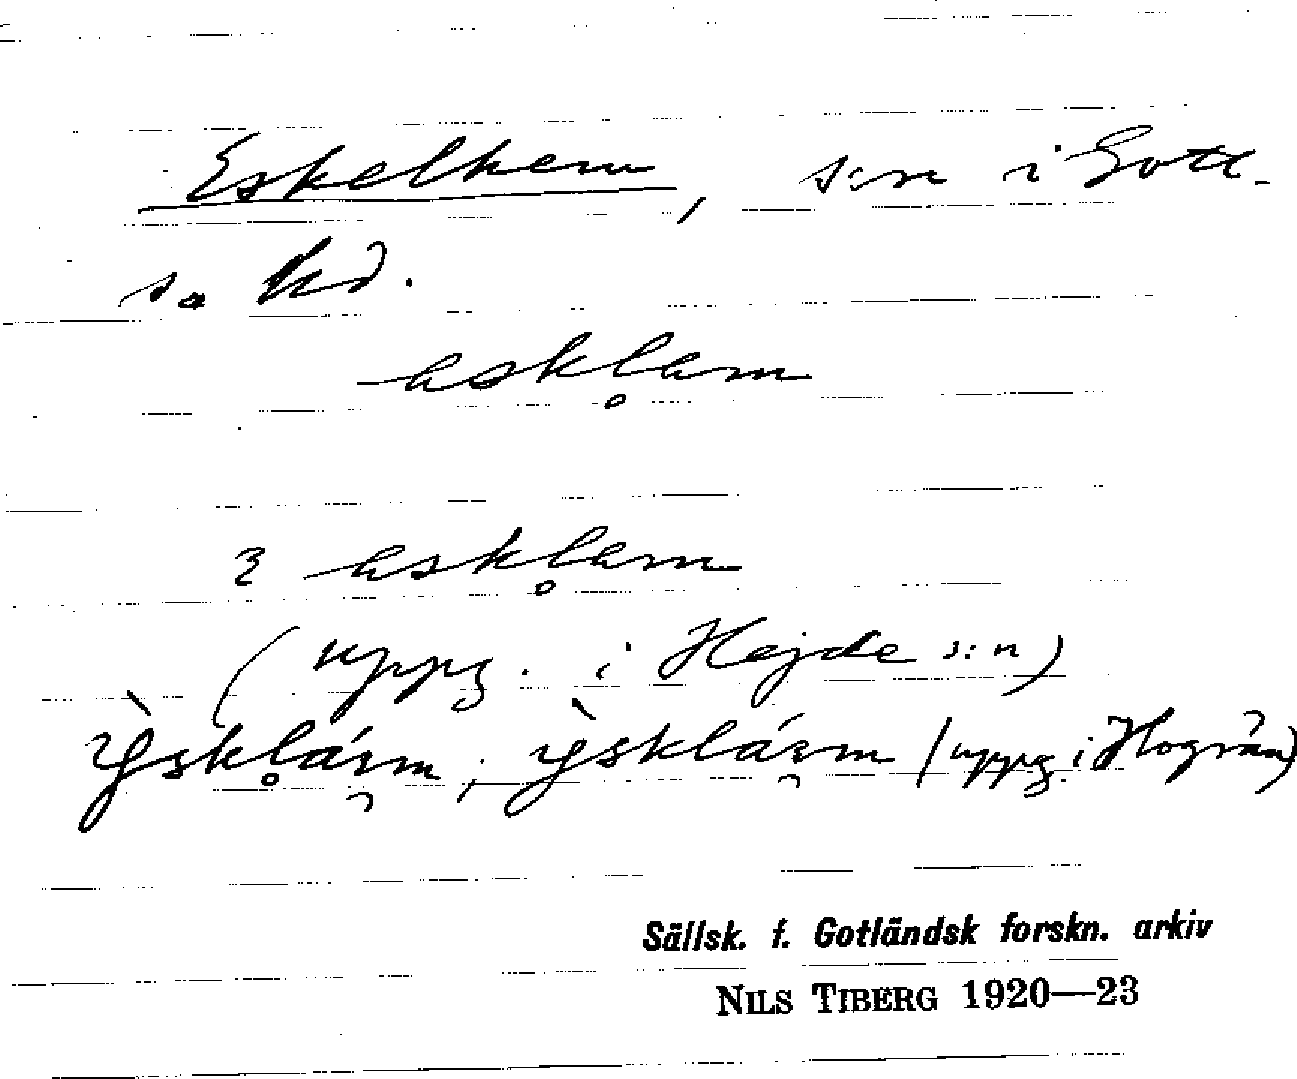 Eskelhem, s:n i Gotl.
sa hd.
askl̥am
3 askl̥am
(uppg. i Hejde s:n)
(uppg. i Hogrän)
Sällsk. f. Gotländsk forskn. arkiv
NILS TIBERG 1920—23